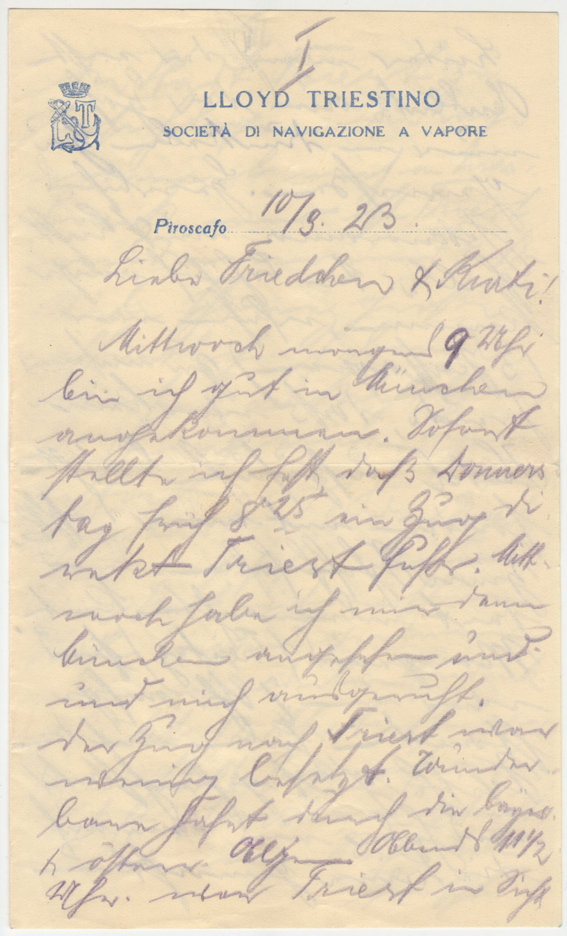 I
LLOYD TRIESTINO
SOCIETÀ DI NAVIGAZIONE A VAPORE
Piroscafo 10/9. 23.
Liebe Friedchen & Kurti!
Mittwoch morgens 9 Uhr
bin ich gut in München
angekommen. Sofort
stellte ich fest, daß Donners
tag früh 8 25 ein Zug di
rekt Triest fuhr. Mitt-
woch habe ich mir dann
angesehen und
und mich ausgeruht.
Der Zug nach Triest war
wenig besetzt. Wunder
bare Fahrt durch die bayer.
& österr. Alpen Abends 11 1/2
Uhr. war Triest in Sicht